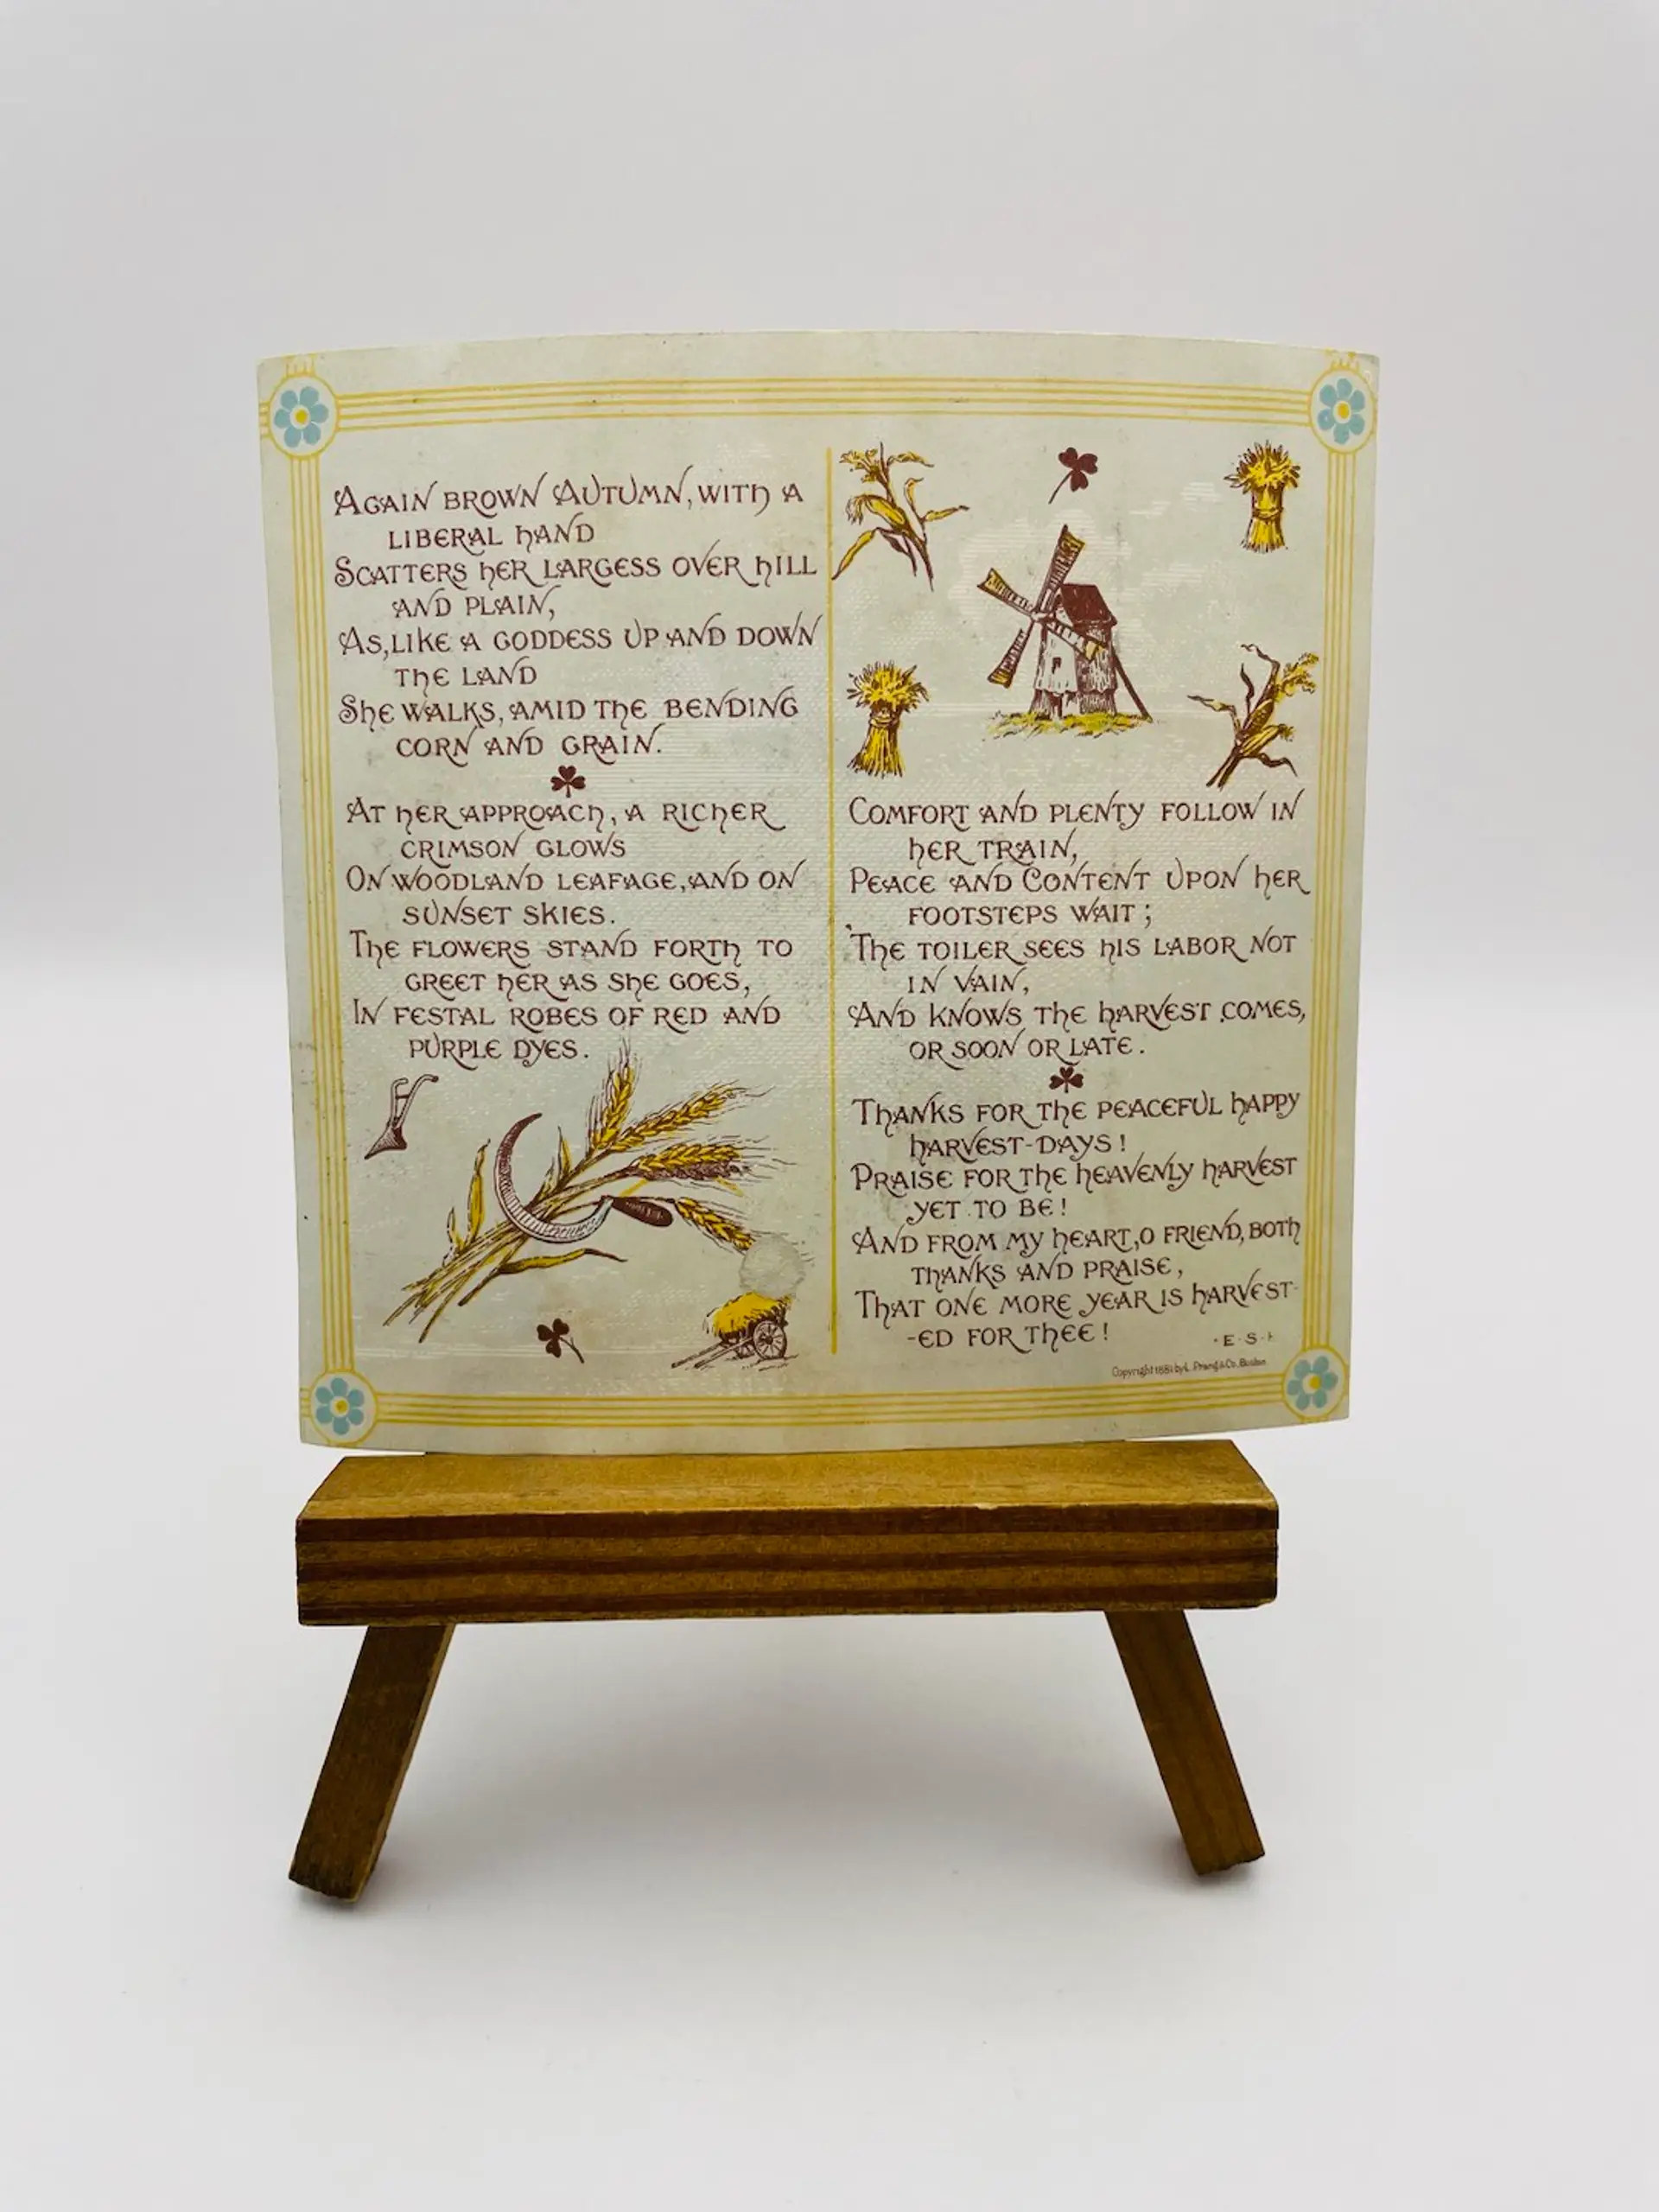 Again brown Autumn, with a
liberal hand
Scatters her largess over hill
and plain,
As, like a goddess up and down
the land
She walks, amid the bending
corn and grain.
At her approach, a richer
crimson glows
On woodland leafage, and on
sunset skies.
The flowers stand forth to
greet her as she goes,
In festal robes of red and
purple dyes.
Comfort and plenty follow in
her train,
Peace and Content upon her
footsteps wait;
The toiler sees his labor not
in vain,
And knows the harvest comes,
or soon or late.
Thanks for the peaceful happy
harvest-days!
Praise for the heavenly harvest
yet to be!
And from my heart, o friend, both
thanks and praise,
That one more year is harvest-
-ed for thee!
· E · S ·
Copyright 1881 by L. Prang & Co. Boston